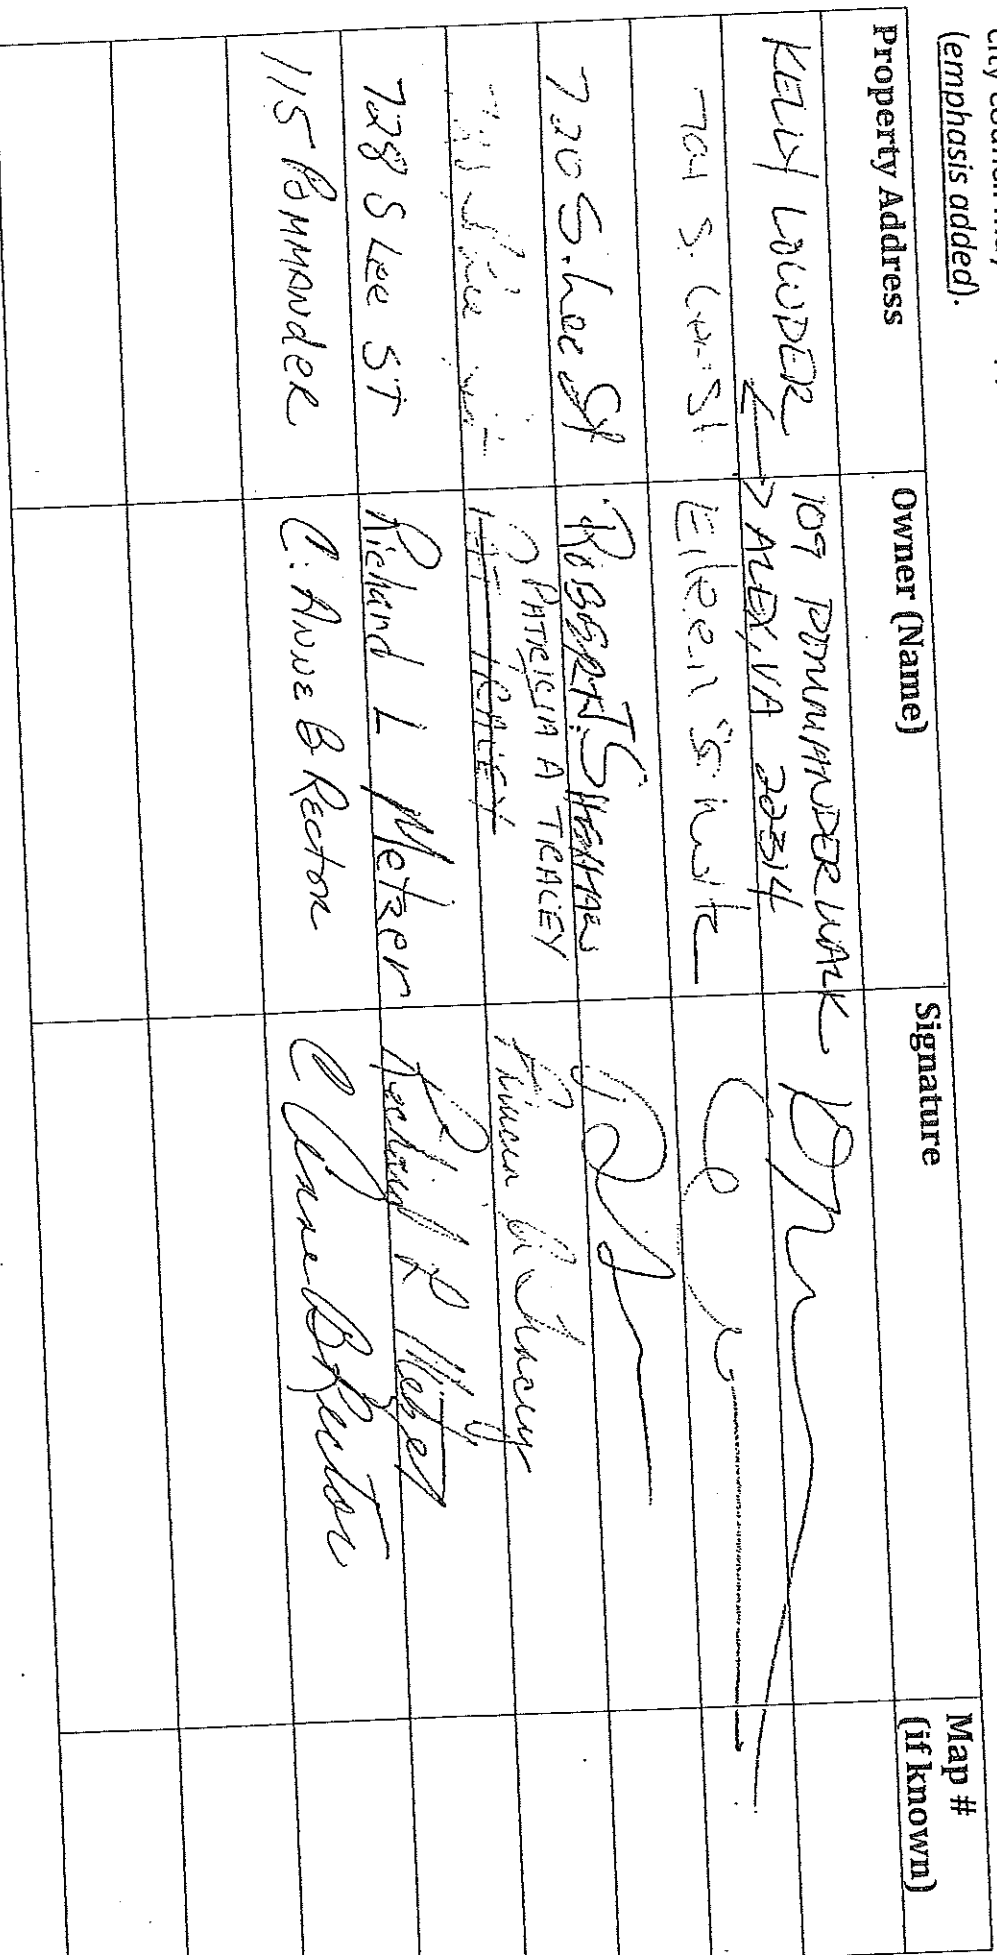 City Council may
(emphasis added).
Property Address Owner (Name) Signature Map # (if known)
KELLY LOWDER 109 POMMANDER WALK
ALEX, VA 22314
704 S. Lee St Eileen
720 S. Lee St ROBERT
PATRICIA A TRACEY
PAT TRACEY Patricia A Tracey
728 S Lee ST Richard L Metzer Richard R Metzer
115 POMMANDER C. ANNE B RECTOR C Anne B Rector